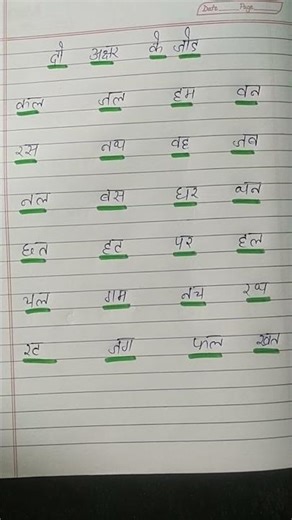 Date Page
दो अक्षर के जोड
कल जल हम वन
रस नथ वह जब
नल बस घर धन
छत हट पर हल
चल गम नच रथ
रट जग फल खत